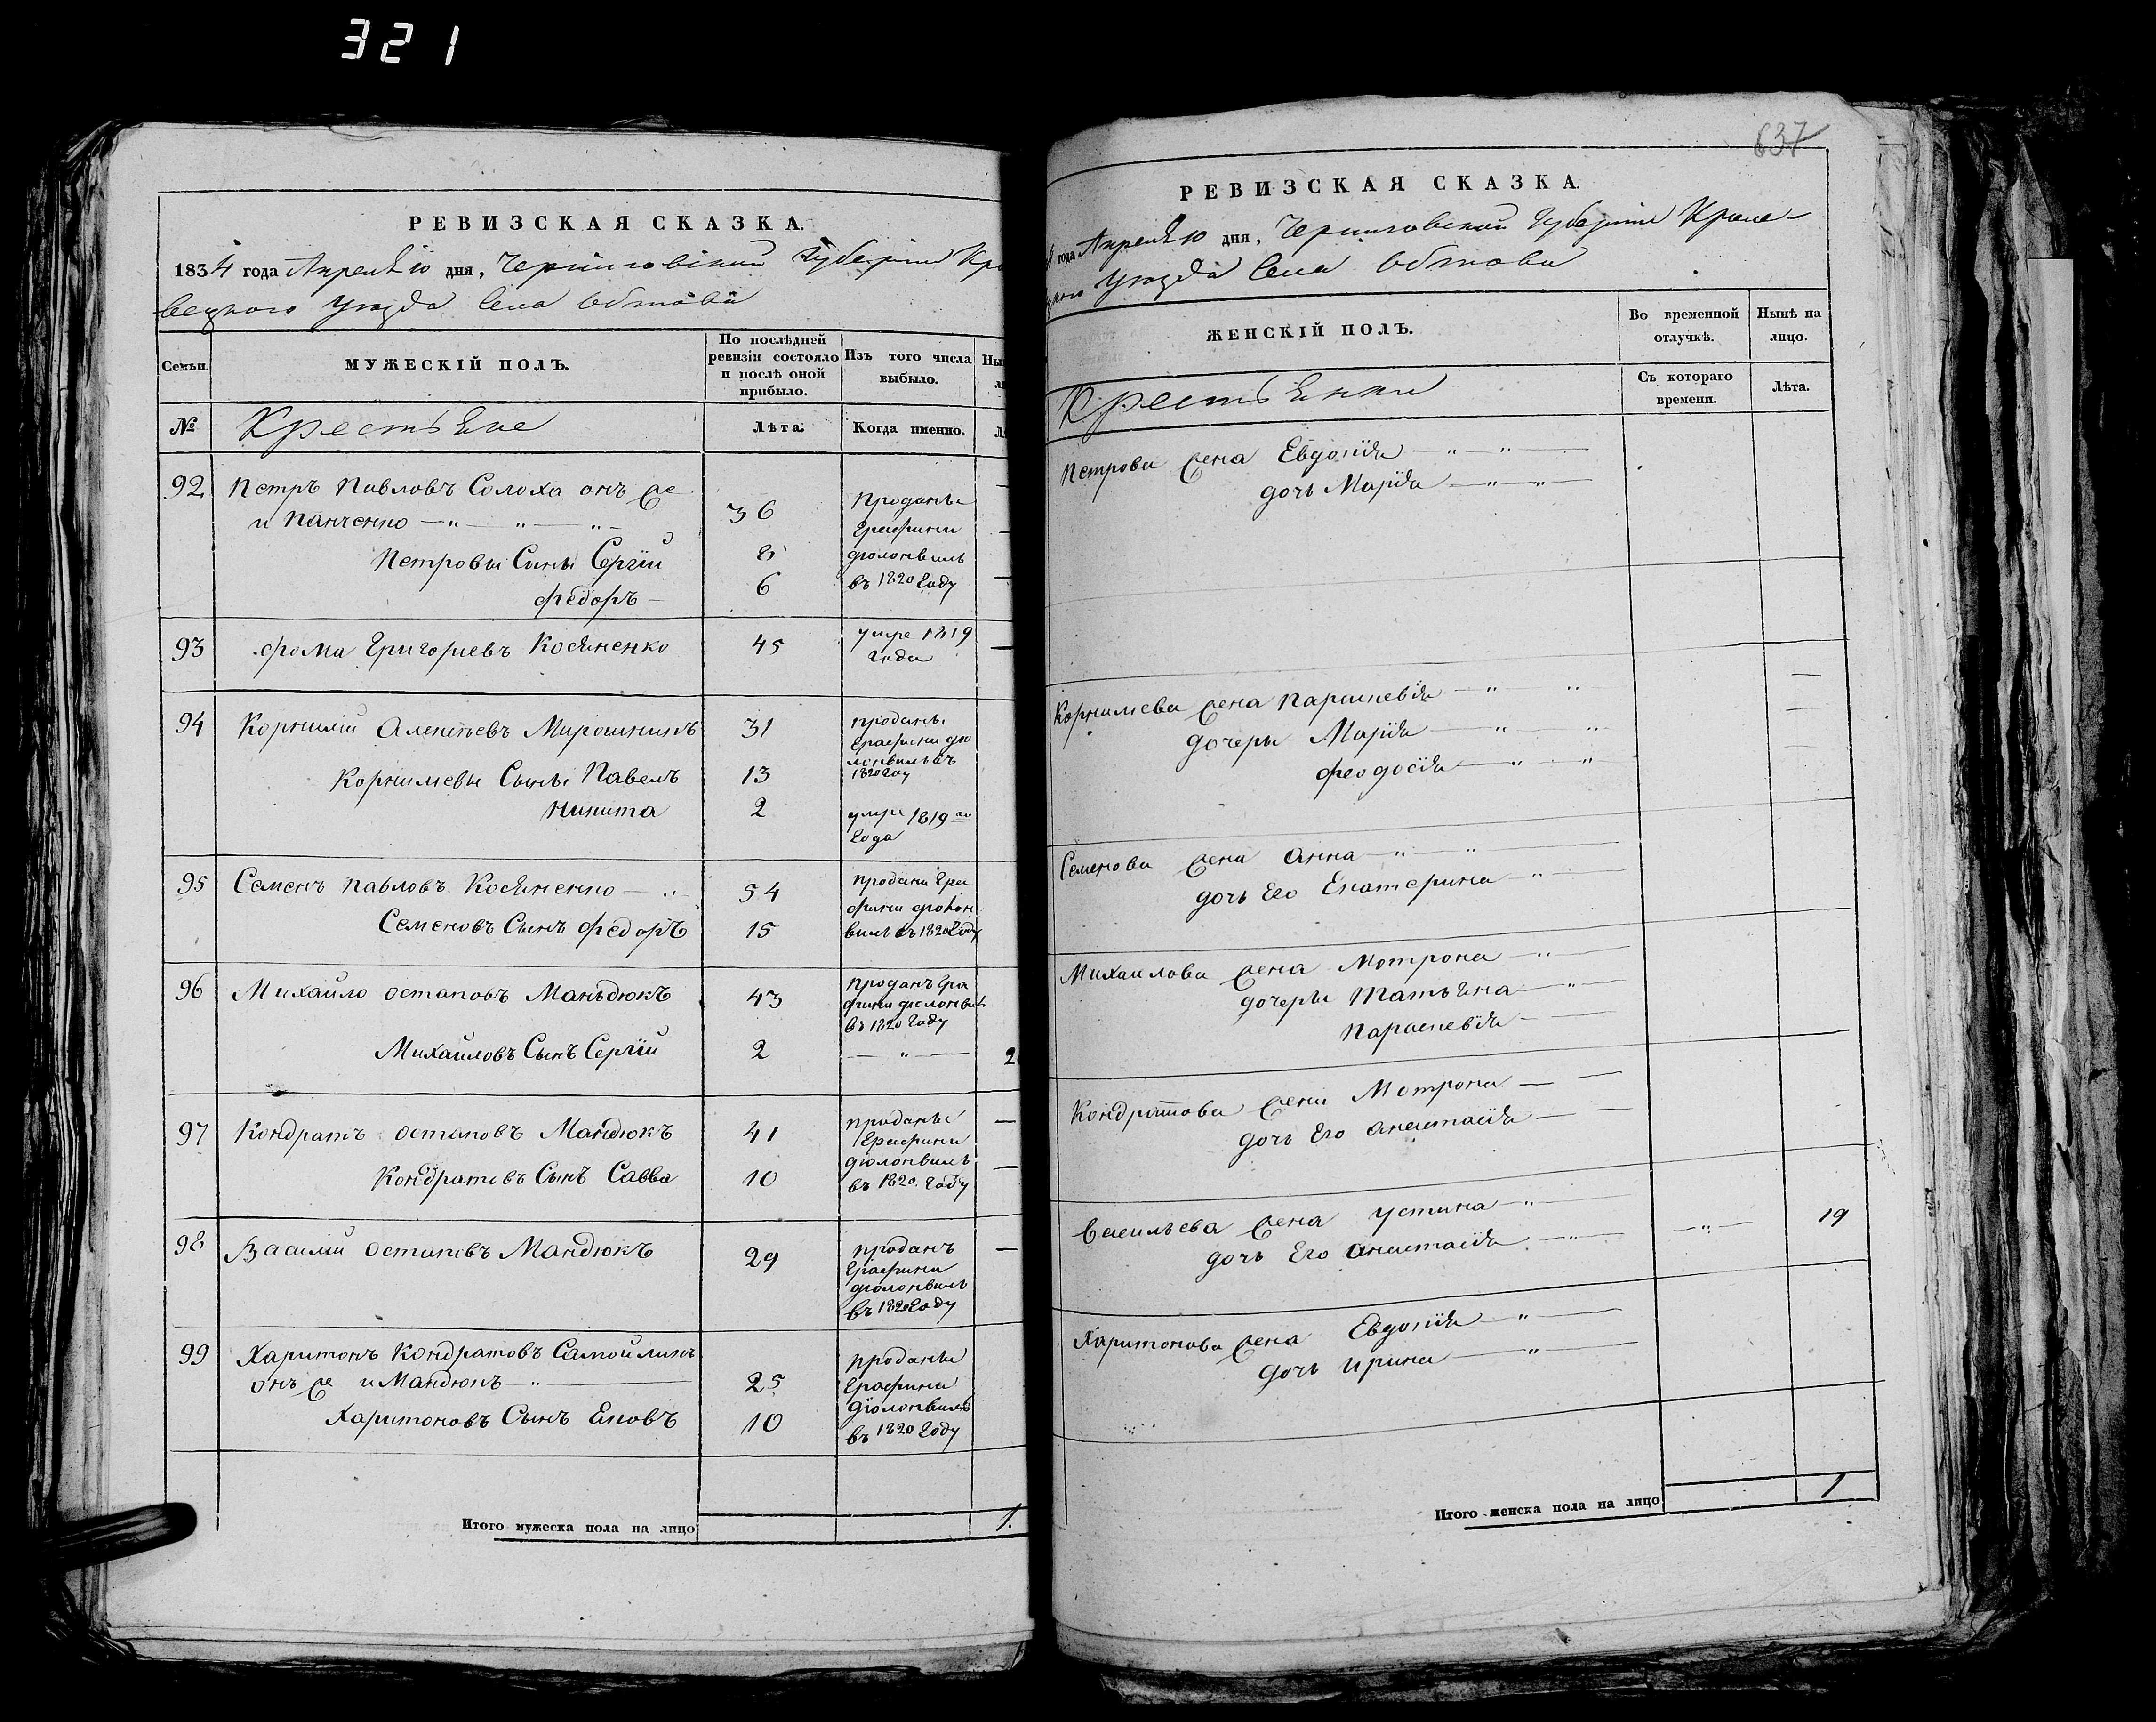 321
РЕВИЗСКАЯ СКАЗКА.
1834 года Апреля 10 дня, Черниговской Губернии Кро
вецкого Уезда Села Обтова
Семьи.
МУЖЕСКІЙ ПОЛЪ.
По послѣдней ревизіи состояло и послѣ оной прибыло.
Изъ того числа выбыло.
№
Крестьяне
Лѣта.
Когда именно.
92 Петръ Павловъ Солоха онъ же
и Панченко — " — " — " — 36 Проданы
Графини
Петровы Сины Сергій 8
въ 1820 Году
Федоръ — 6
93 Фома Григориевъ Косяненко 45 умре 1819
Года
94 Корнилій Алексѣевъ Мирошникъ 31 проданы
Графини
Корнилиевы Сыны Павелъ 13
1820 Году
Никита 2 умре 1819 го
Года
95 Семенъ Павловъ Косяненко — " 54 продани Гра
фини
Семеновъ Сынъ Федоръ 15 въ 1820 Году
96 Михайло Остаповъ Маньдюкъ 43 проданъ Гра
фини
въ 1820 Году
Михаиловъ Сынъ Сергій 2 — " —
97 Кондратъ Остаповъ Мандюкъ 41 проданы
Графини
Кондратовъ Сынъ Савва 10
въ 1820. Году
98 Василий Остаповъ Мандюкъ 29 проданъ
Графини
въ 1820 Году
99 Харитонъ Кондратовъ Самойликъ
онъ же и Мандюкъ — " — 25 проданы
Графини
Харитоновъ Сынъ Яковъ 10
въ 1820 Году
Итого мужеска пола на лицо 1.
637
РЕВИЗСКАЯ СКАЗКА.
года Апреля 10 дня, Черниговской Губернии Кроле-
Уезда Села Обтова
ЖЕНСКІЙ ПОЛЪ.
Во временной отлучкѣ.
Нынѣ на лицо.
Крестьянки
Съ котораго времени.
Лѣта.
Петрова жена Евдокія — " — " —
дочь Марія — " — " —
Корнилиева жена Параскевія — " — "
дочеры Марія — " — "
Феодосія — " — "
Семенова жена Анна — " — " —
дочь Его Екатерина — " —
Михаилова жена Мотрона — " —
дочеры Татьяна — " —
Параскевія — —
Кондратова жена Мотрона — —
дочь Его Анастасія — —
Васильева жена Устина — " —
дочь Его Анастасія — " — — " — 19
Харитонова жена Евдокія — " —
дочь Ирина — " —
Итого женска пола на лицо 1